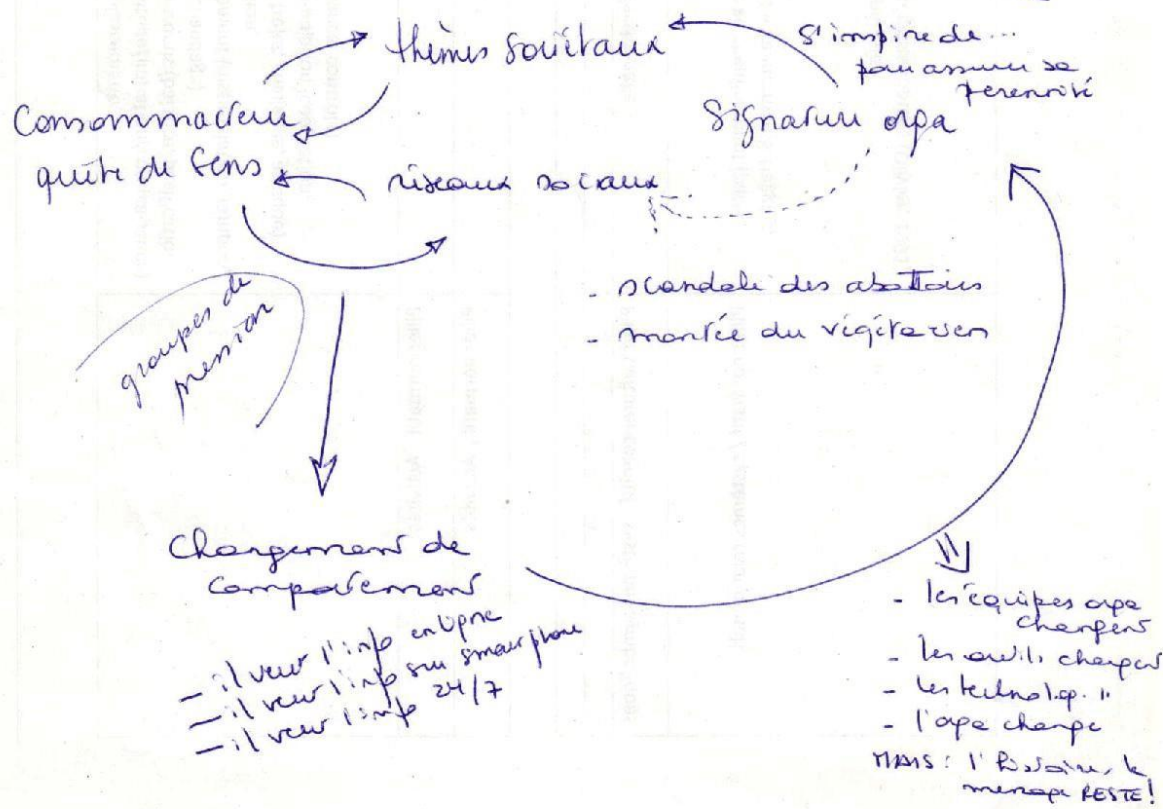 thèmes sociétaux
S'inspire de...
pour assurer sa
pérennité
Signature orga
Consommacteur
quête de sens
réseaux sociaux
- scandale des abattoirs
- montée du végétarien
groupes de
pression
Changement de
comportement
- il veut l'info en ligne
- il veut l'info sur smartphone
- il veut l'info 24/7
- les équipes orga
changent
- les outils changent
- les technolog. "
- l'orga change
MAIS: l'histoire, le
message RESTE!